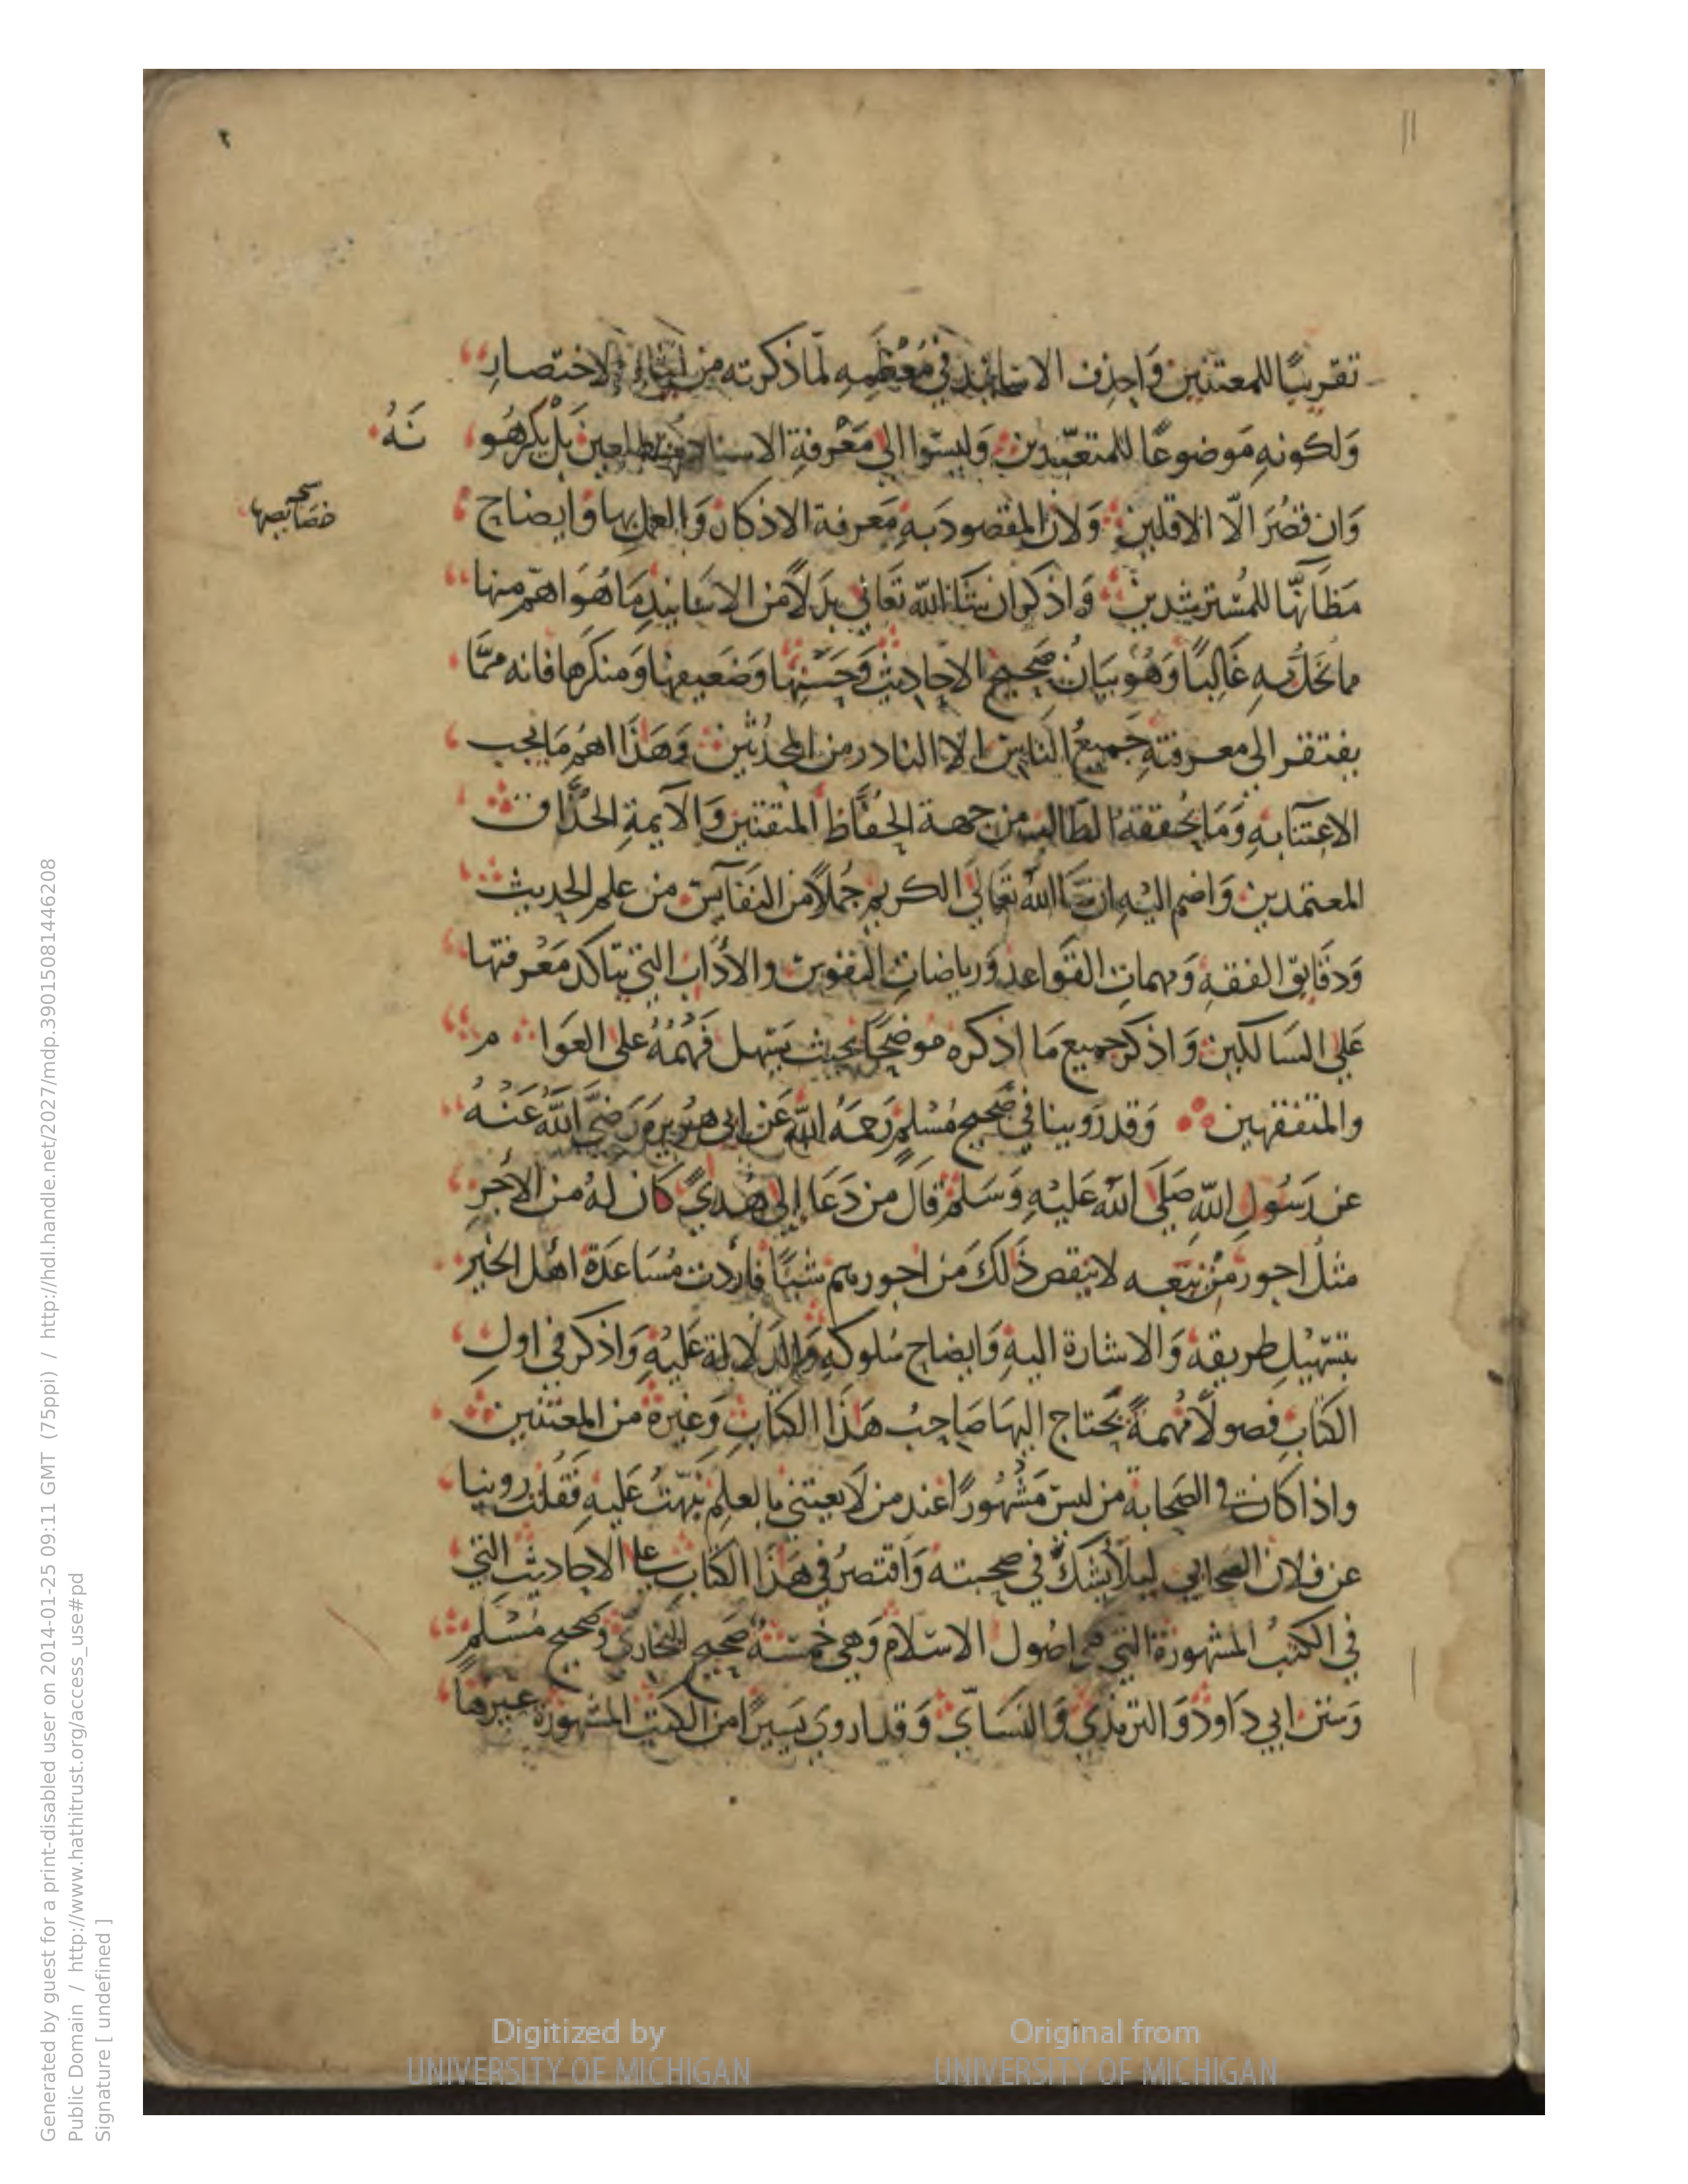 ٢
11
تقريبًا للمعتنين وَاحذف الاسانيد في مُعْظمِهِ لما ذكرته من ايثار الاختصار
وَلكونهِ مَوضوعًا للمتعبّدين وَليسَوا الى مَعْرفةِ الاسناد متطلعين بَلْ يكرهُو نَهُ
وَان قصُرَ الّا الاقلين وَلان المقصودَ بهِ مَعرفة الاذكار وَالعمل بها وَايضاح
نسخه
خصَائصها
مَظَانّها للمُسْترشدين وَاذكر ان شَاء الله تعَالي بَدَلًا من الاسَانيدِ مَا هُوَ اهم منها
مما يخلّ بهِ غَالبًا وَهُوَ بيَانُ صَحيح الاحاديث وَحَسَنِها وَضَعيفها وَمنكرها فانه ممَّا
يفتقر الى معرفتهِ جَميعُ الناس الا النادر من المحدّثين وَهَذا اهمُ مَا يجب
الاعتنَا بهِ وَمَا يُحققهُ الطالب من جهة الحُفّاظ المتقنين وَالايمةِ الحُذّاق
المعتمدين وَاضم اليْه ان شَا اللهُ تعَالَى الكريم جُملًا من النفَآيس من علم الحديث
وَدقَايق الفقهِ وَمهمات القوَاعد وَرياضات النفوس والآدَاب التي تتاكد مَعْرفتها
عَلي السَالكين وَاذكر جميع مَا اذكره مُوَضحًا بحيث يَسْهل فَهْمُهُ على العَوا م
والمتفقهين وَقد رَوينا في صَحيح مُسْلم رَحمَهُ الله عَن ابى هريرة رَضيَ اللهُ عَنهُ
عن رَسُولِ اللهِ صَلَى الله عَليْهِ وَسَلم قالَ من دَعَا إلى هُدىً كان لهُ من الأجر
مثلُ اجور مَنْ تبعه لا ينقص ذَلكَ من اجورهم شيئًا فاردت مُسَاعدَة اهْل الخيْر
بتسْهيل طريقه وَالاشارة اليهِ وَايضاح سُلوكه وَالدّلالة عَليْهِ وَاذكر في اول
الكتاب فصولًا مُهمةً يَحتاج اليهَا صَاحبُ هَذا الكتابِ وَغيره من المعتنين
واذا كان في الصَحابة من ليسَ مَشْهُورًا عند من لَا يعتني بالعلم نبّهتُ عَليهِ فَقُلت روينا
عن فلان الصحابي ليلَا يُشكّ في صحبته وَاقتصرُ في هَذا الكتاب على الاحاديث التي
في الكتُبُ المشهورة التي هي اصُول الاسَلام وَهي خمسَة صَحيح البخاري وصحيح مُسْلم
وَسنن ابي دَاودُ وَالترمذي وَالنسَايّ وَقد اروي يَسيرًا من الكتب المشهورة غيرها